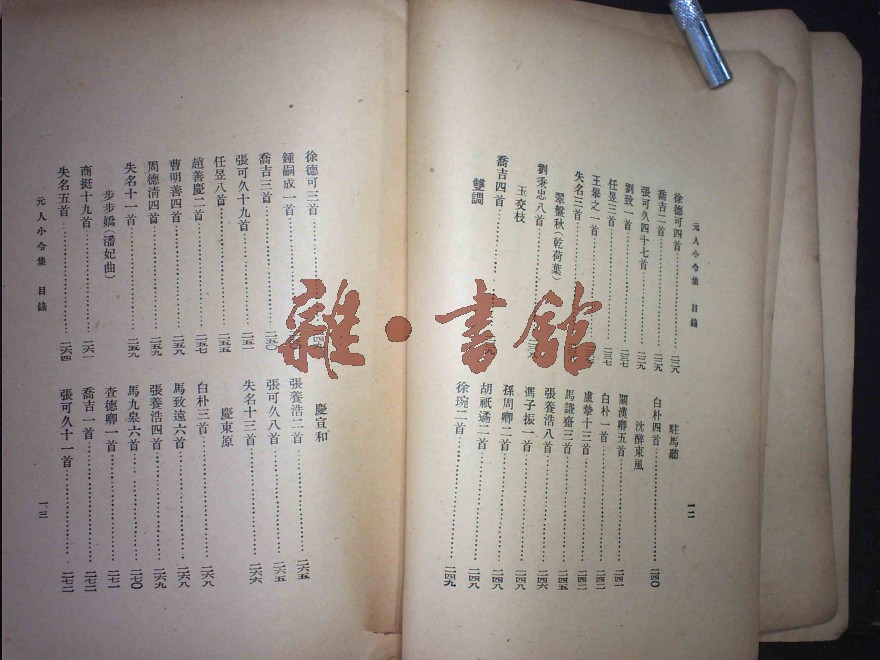 元人小令集 目錄
一二
徐德可四首
喬吉二首
張可久四十七首
劉致一首
任昱三首
王舉之一首
失名三首
翠盤秋(乾荷葉)
劉秉忠八首
玉交枝
喬吉四首
雙調
駐馬聽
白朴四首 二四〇
沈醉東風
關漢卿五首 二四一
白朴一首 二四二
盧摯十三首 二四二
馬謙齋三首 二四五
張養浩八首 二四六
馮子振一首 二四八
孫周卿二首 二四八
胡祇遹二首 二四八
徐琬二首 二四九
徐德可三首
鍾嗣成一首
喬吉三首 二五〇
張可久十九首 二五一
任昱八首 二五五
趙善慶二首 二五七
曹明善四首 二五八
周德清四首 二五九
失名十一首 二五九
步步嬌(潘妃曲)
商挺十九首 二六一
失名五首 二六四
慶宣和
張養浩二首 二六五
張可久八首 二六五
失名十三首 二六六
慶東原
白朴三首 二六八
馬致遠六首 二六八
張養浩四首 二六九
馬九皋六首 二七〇
查德卿一首 二七一
喬吉一首 二七二
張可久十一首 二七二
元人小令集 目錄
一三
雜·書館